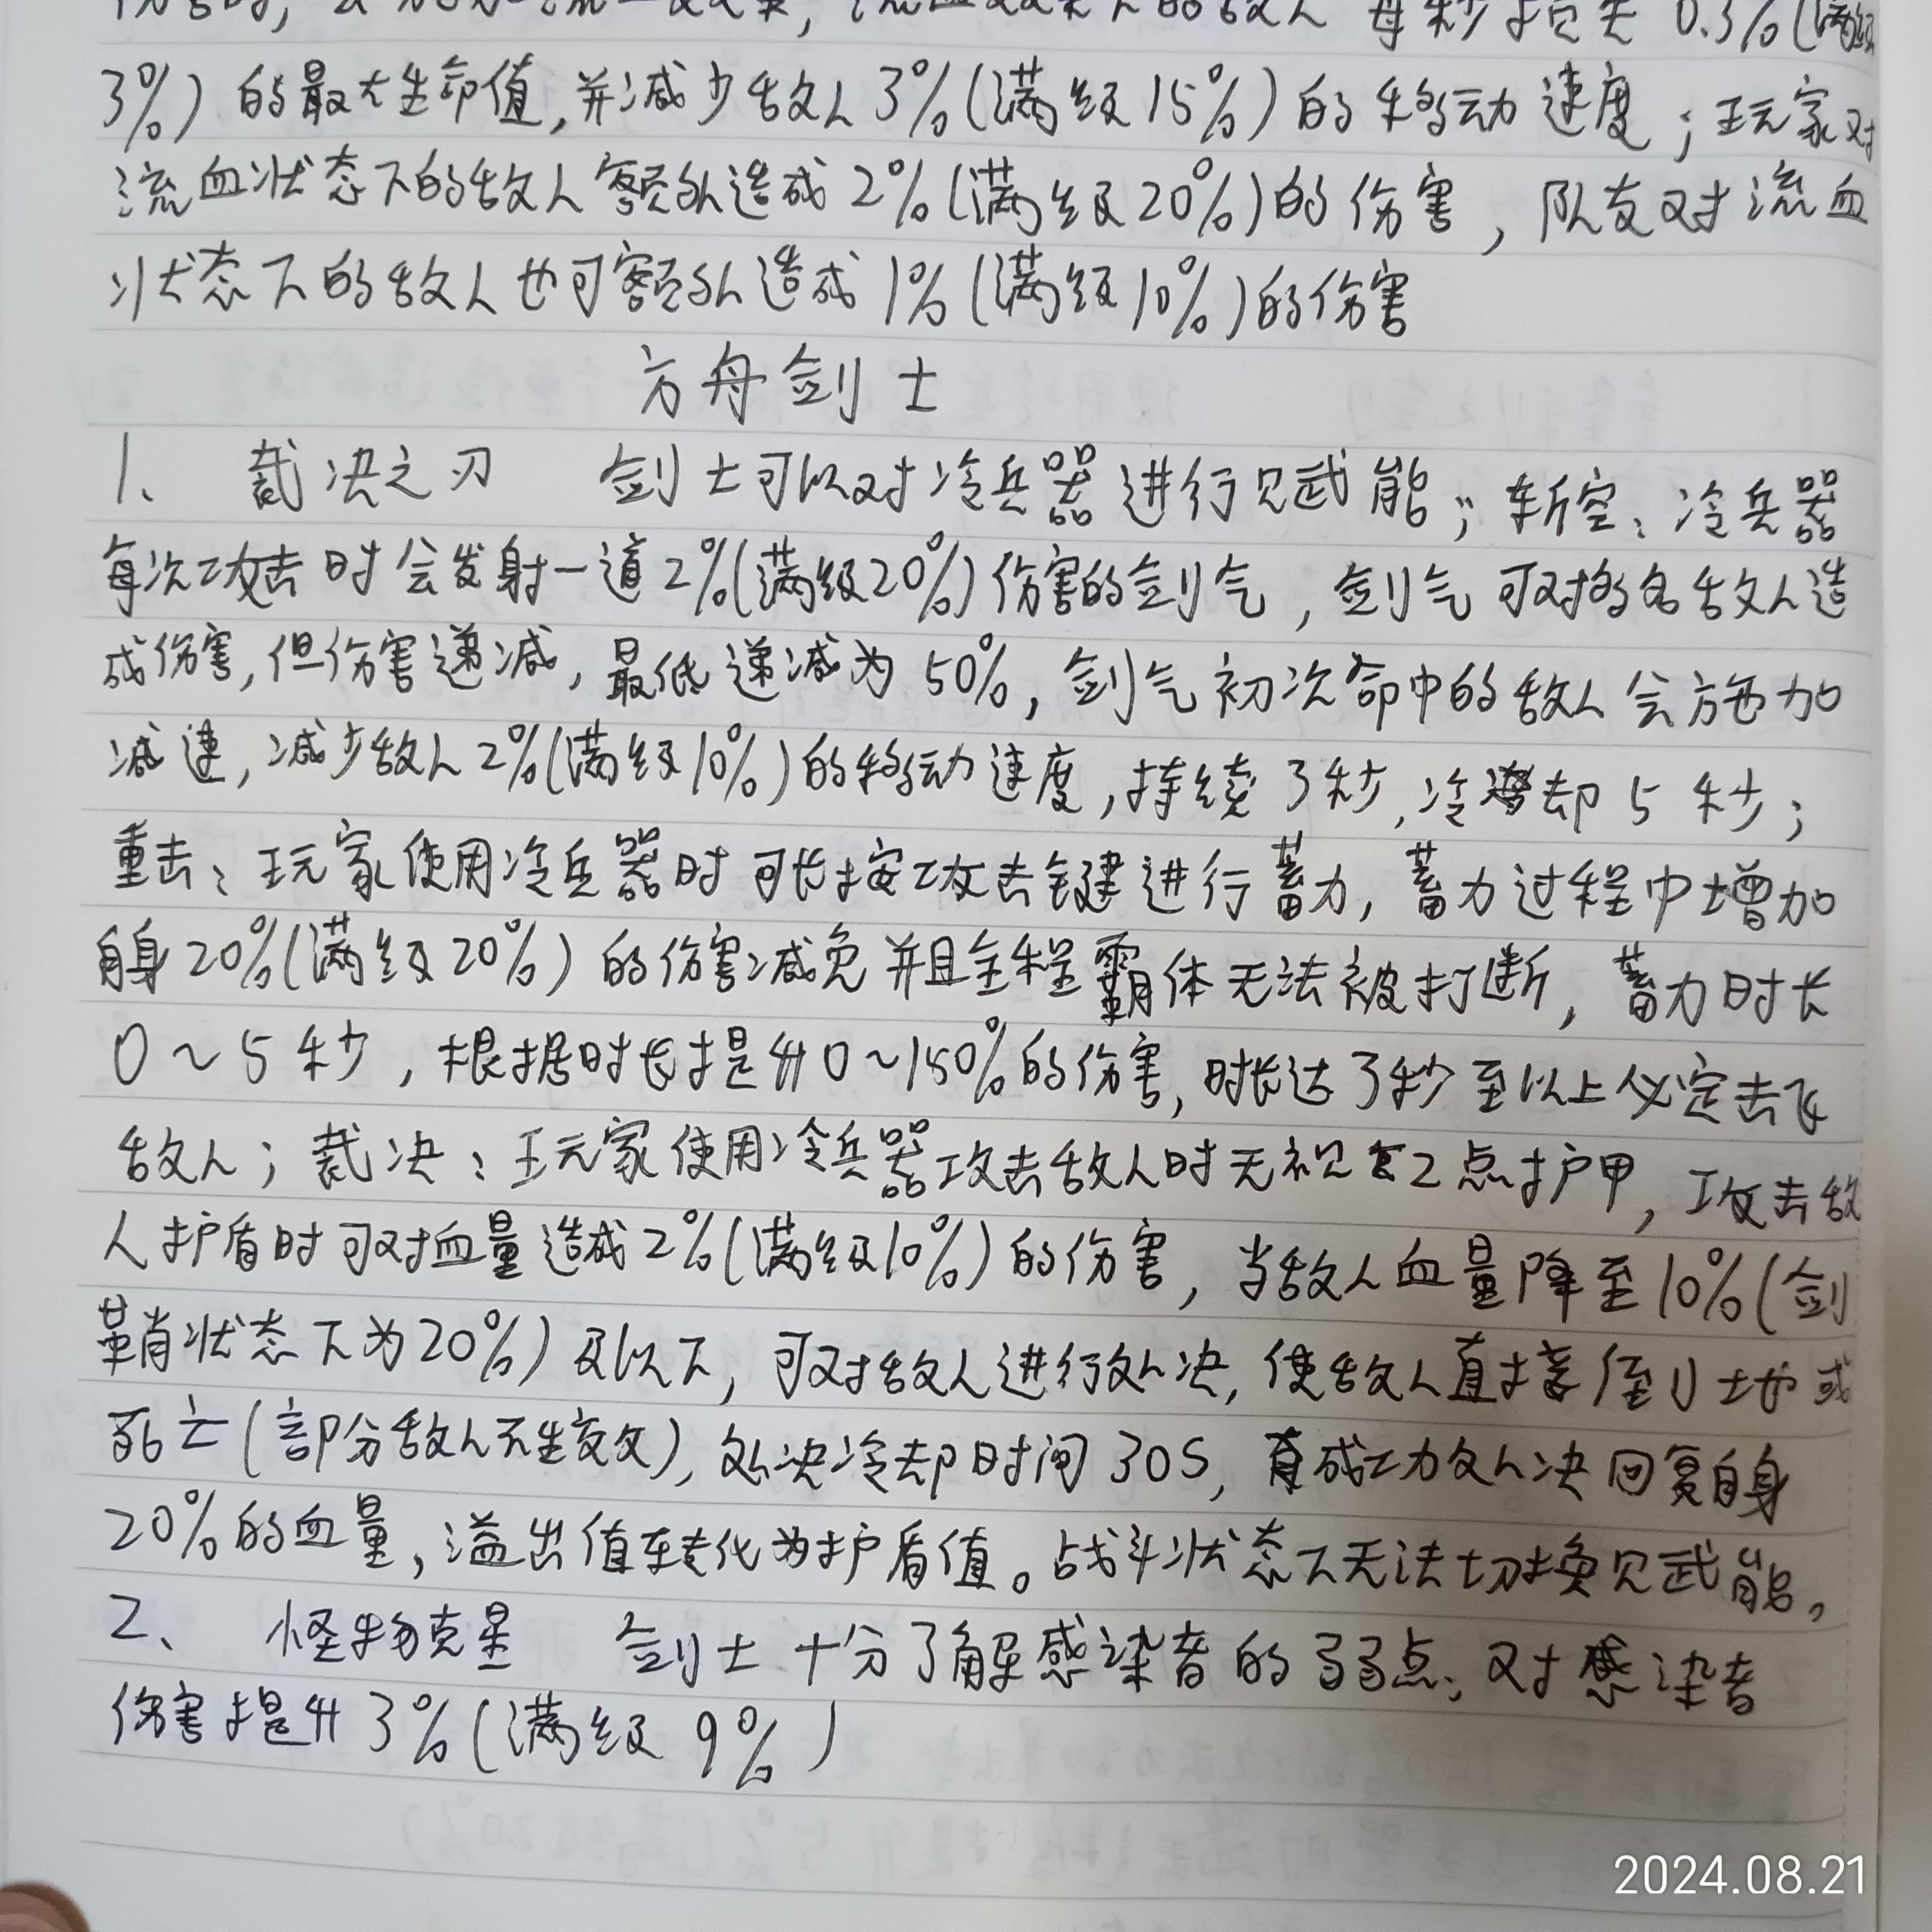 每秒损失0.3%(满级
3%)的最大生命值,并减少敌人3%(满级15%)的移动速度;玩家对
流血状态下的敌人额外造成2%(满级20%)的伤害,队友对流血
状态下的敌人也可额外造成1%(满级10%)的伤害
方舟剑士
1、 裁决之刃 剑士可以对冷兵器进行贝武能;斩空:冷兵器
每次攻击时会发射一道2%(满级20%)伤害的剑气,剑气可对多名敌人造
成伤害,但伤害递减,最低递减为50%,剑气初次命中的敌人会施加
减速,减少敌人2%(满级10%)的移动速度,持续3秒,冷却5秒;
重击:玩家使用冷兵器时可长按攻击键进行蓄力,蓄力过程中增加
自身20%(满级20%)的伤害减免并且全程霸体无法被打断,蓄力时长
0~5秒,根据时长提升0~150%的伤害,时长达3秒至以上必定击飞
敌人;裁决:玩家使用冷兵器攻击敌人时无视2点护甲,攻击敌
人护盾时可对血量造成2%(满级10%)的伤害,当敌人血量降至10%(剑
鞘状态下为20%)及以下,可对敌人进行处决,使敌人直接倒地或
死亡(部分敌人不生效),处决冷却时间30S,成功处决回复自身
20%的血量,溢出值转化为护盾值。战斗状态下无法切换贝武能。
2、 怪物克星 剑士十分了解感染者的弱点,对感染者
伤害提升3%(满级9%)
2024.08.21